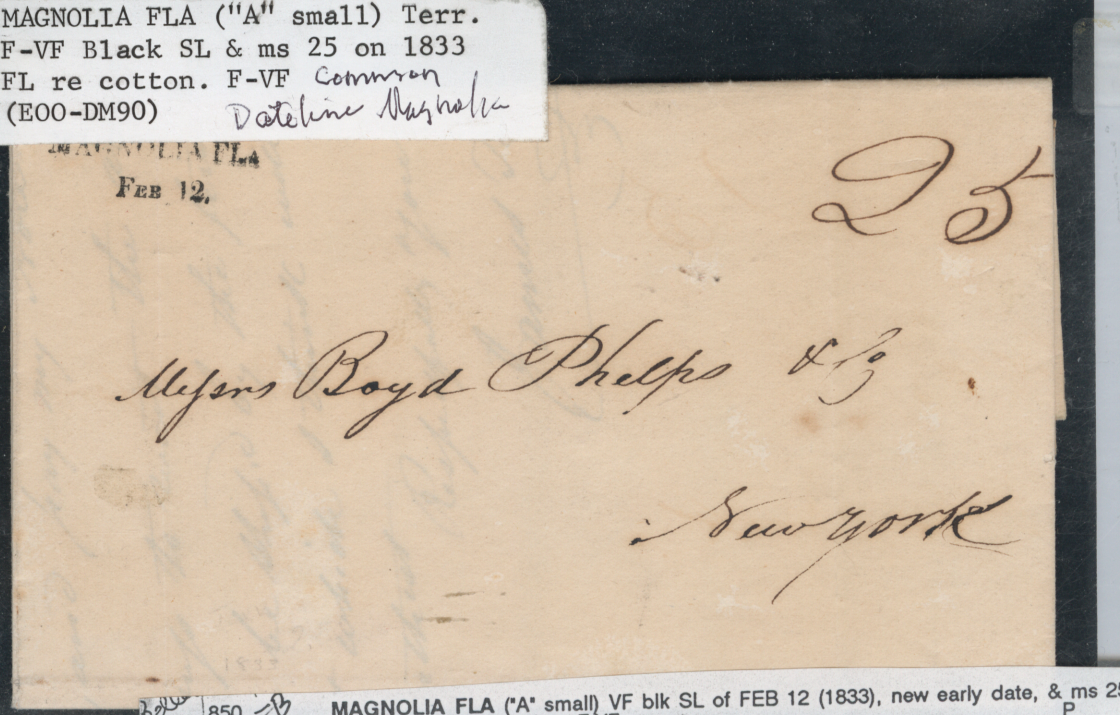 MAGNOLIA FLA ("A" small) Terr.
F-VF Black SL & ms 25 on 1833
FL re cotton. F-VF Common
(EOO-DM90) Dateline Magnolia
MAGNOLIA FLA
FEB 12.
25
Messrs Boyd Phelps & Co
New York
850
MAGNOLIA FLA ("A" small) VF blk SL of FEB 12 (1833), new early date, & ms 25
P